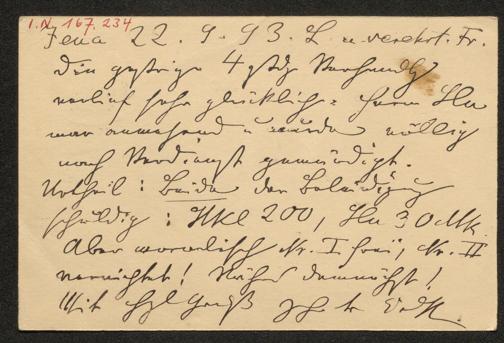 I.N. 167.234
Jena 22. 9. 93. L. u. verehrt. Fr.
Die gestrige 4 stdg Verhandlg
verlief sehr glücklich: Herr Hn
war anwesend u wurde völlig
nach Verdienst gewürdigt.
Urtheil: Beide der Beleidigung
schuldig: Hkl 200, Hn 30 Mk.
Aber moralisch Nr. I frei, Nr. II
vernichtet! Näher demnächst!
Mit hzl Gruß Ihr tr